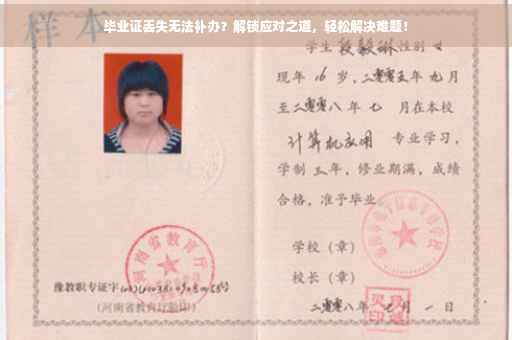 毕业证丢失无法补办？解锁应对之道，轻松解决难题！
样本
学生 段毅琳 性别 女
现年 16 岁，二零零五年 九月
至二零零八年 七 月在本校
计算机应用 专业学习，
学制 三 年，修业期满，成绩
合格，准予毕业
学校（章）
校长（章）
二零零八年 七 月 一 日
河南省教育厅
豫教职专证字
（河南省教育厅验印）